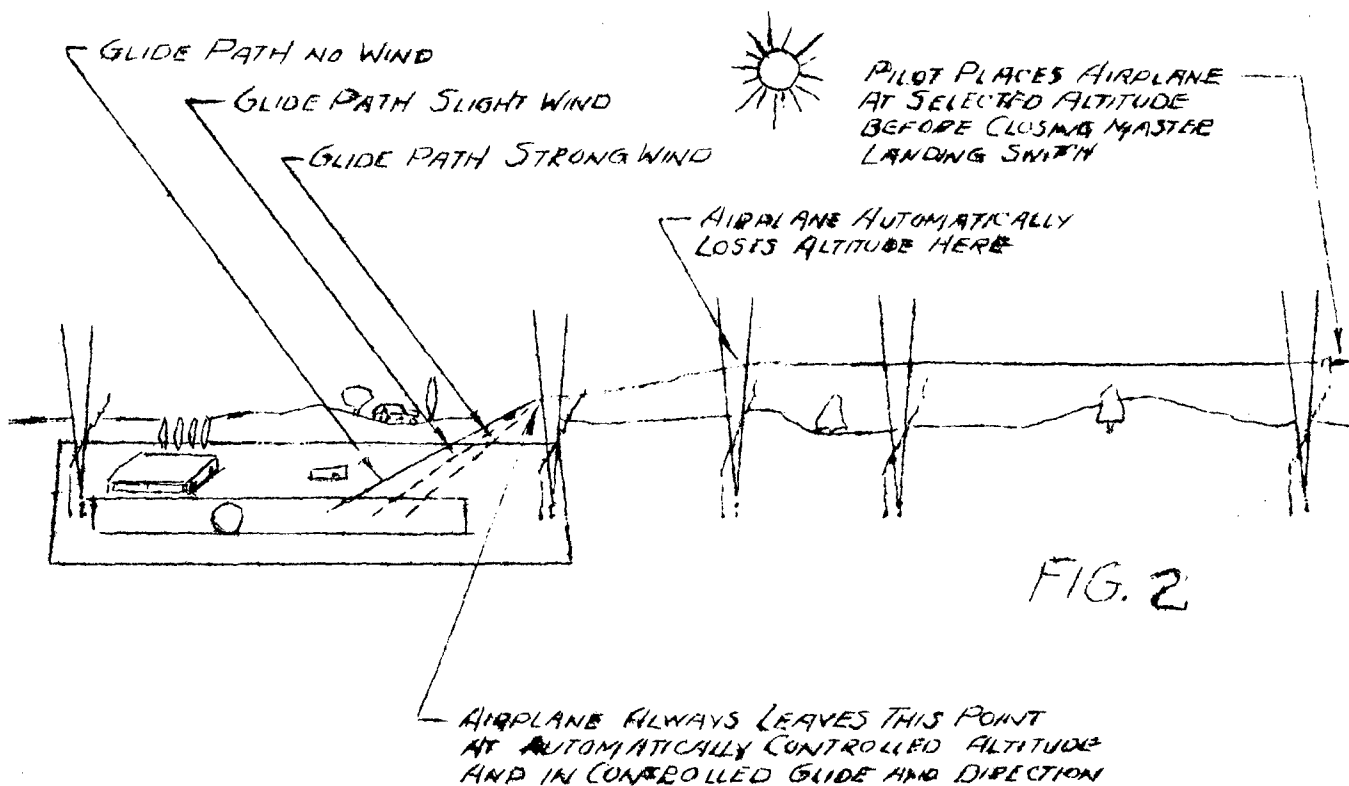 GLIDE PATH NO WIND
GLIDE PATH SLIGHT WIND
GLIDE PATH STRONG WIND
PILOT PLACES AIRPLANE
AT SELECTED ALTITUDE
BEFORE CLOSING MASTER
LANDING SWITCH
AIRPLANE AUTOMATICALLY
LOSES ALTITUDE HERE
FIG. 2
AIRPLANE ALWAYS LEAVES THIS POINT
AT AUTOMATICALLY CONTROLLED ALTITUDE
AND IN CONTROLLED GLIDE AND DIRECTION